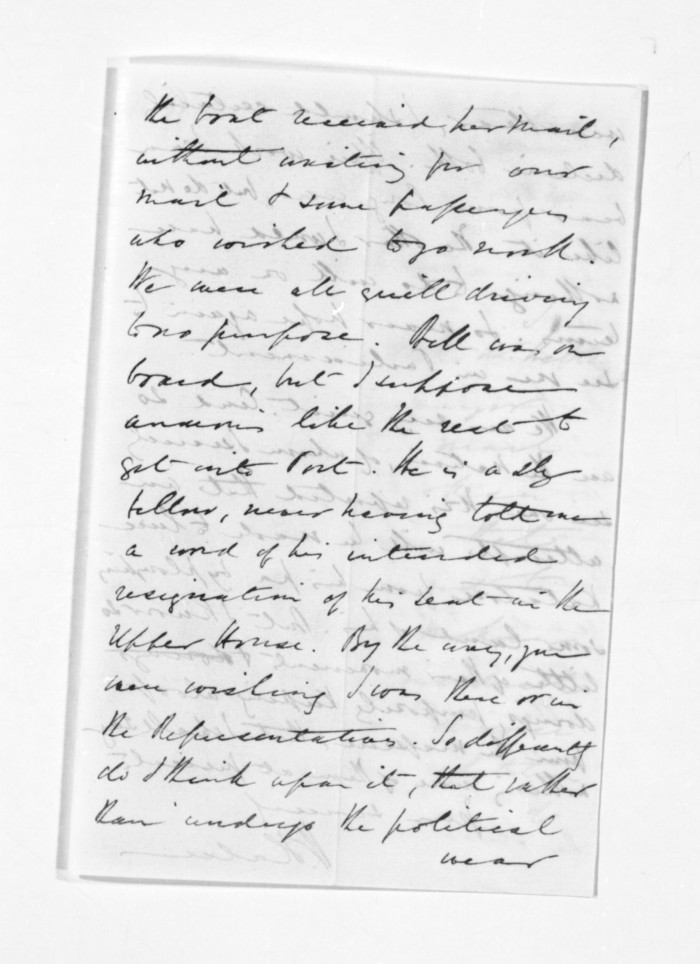 the boat received her mail,
without waiting for our
mail & some passengers
who wished to go north.
We were all quill driving
to no purpose. Bell was on
board, but I suppose
anxious like the rest to
get into Port. He is a sly
fellow, never having told me
a word of his intended
resignation of his seat in the
Upper House. By the way, you
were wishing I was there or in
the Representatives. So differently
do I think upon it, that rather
than undergo the political
wear